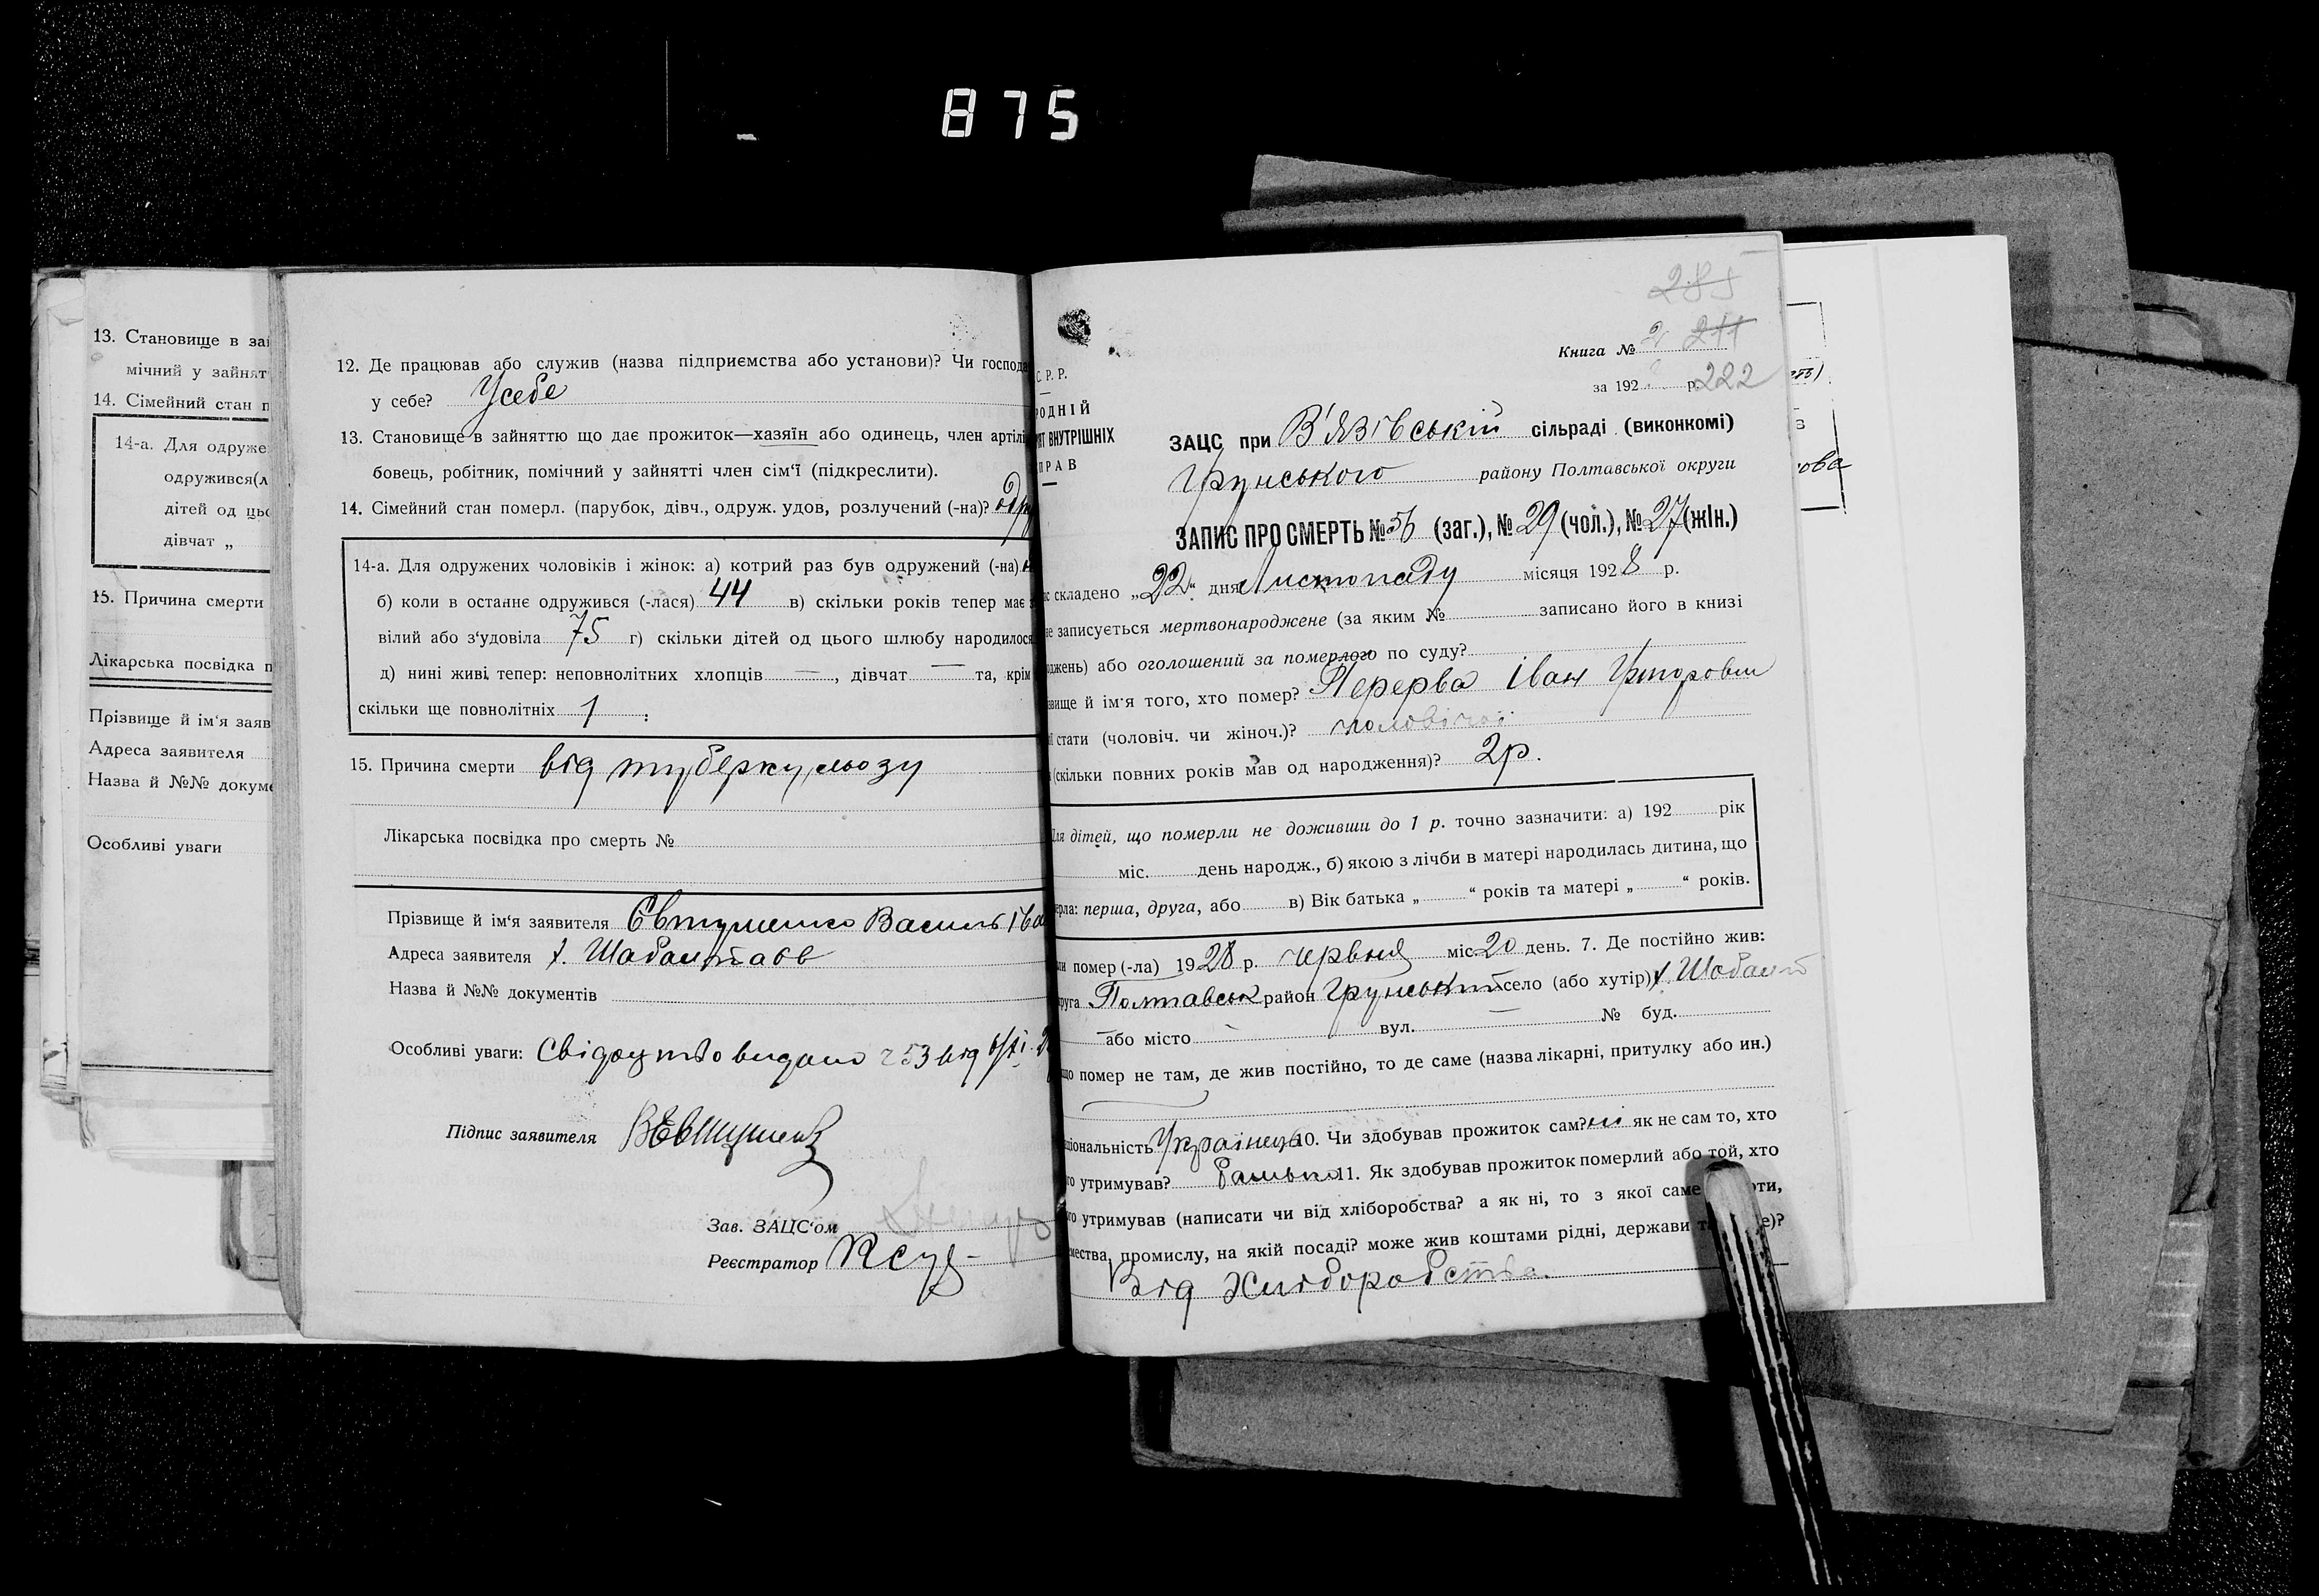 875
13. Становище в зай
мічний у зайнят
14. Сімейний стан п
14-а. Для одруже
одружився(л
дітей од цьо
дівчат „
15. Причина смерти
Лікарська посвідка п
Прізвище й ім'я заяв
Адреса заявителя
Назва й №№ докуме
Особливі уваги
12. Де працював або служив (назва підприємства або установи)? Чи господа
у себе? Усебе
13. Становище в зайняттю що дає прожиток—хазяїн або одинець, член артілі
бовець, робітник, помічний у зайнятті член сім'ї (підкреслити).
14. Сімейний стан померл. (парубок, дівч., одруж. удов, розлучений (-на)? одр
14-а. Для одружених чоловіків і жінок: а) котрий раз був одружений (-на)
б) коли в останнє одружився (-лася) 44 в) скільки років тепер має
вілий або з'удовіла 75 г) скільки дітей од цього шлюбу народилося
д) нині живі тепер: неповнолітних хлопців — , дівчат — та, крім
скільки ще повнолітніх 1 ;
15. Причина смерти від туберкульозу
Лікарська посвідка про смерть №
Прізвище й ім'я заявителя Євтушенко Василь Іва
Адреса заявителя х. Шабалтаєв
Назва й №№ документів
Особливі уваги: Свідоцтво видано 253 від
Підпис заявителя ВЕвтушенк
Зав. ЗАЦС'ом
Реєстратор
285
Книга № 2 211
за 192 р. 222
С. Р. Р.
РОДНІЙ
ЯТ ВНУТРІШНІХ
ПРАВ
ЗАЦС при В'язівській сільраді (виконкомі)
Грунського району Полтавської округи
ЗАПИС ПРО СМЕРТЬ № 56 (заг.), № 29 (чол.), № 27 (жін.)
с складено „22“ дня Листопаду місяця 1928 р.
не записується мертвонароджене (за яким № записано його в книзі
оджень) або оголошений за померлого по суду?
звище й ім'я того, хто помер? Перерва Іван
ої стати (чоловіч. чи жіноч.)? чоловічої
(скільки повних років мав од народження)? 2р.
Для дітей, що померли не доживши до 1 р. точно зазначити: а) 192 рік
міс. день народж., б) якою з лічби в матері народилась дитина, що
ерла: перша, друга, або в) Вік батька „ “ років та матері „ “ років.
ли помер (-ла) 1928 р. червня міс. 20 день. 7. Де постійно жив:
руга Полтавськ район Грунський село (або хутір) х. Шабалт
— або місто — вул. — № буд.
що помер не там, де жив постійно, то де саме (назва лікарні, притулку або ин.)
ціональність Українець 10. Чи здобував прожиток сам? ні як не сам то, хто
го утримував? батько 11. Як здобував прожиток померлий або той, хто
ого утримував (написати чи від хліборобства? а як ні, то з якої саме оти,
мества, промислу, на якій посаді? може жив коштами рідні, держави т е)?
Від Хліборобства.
ова